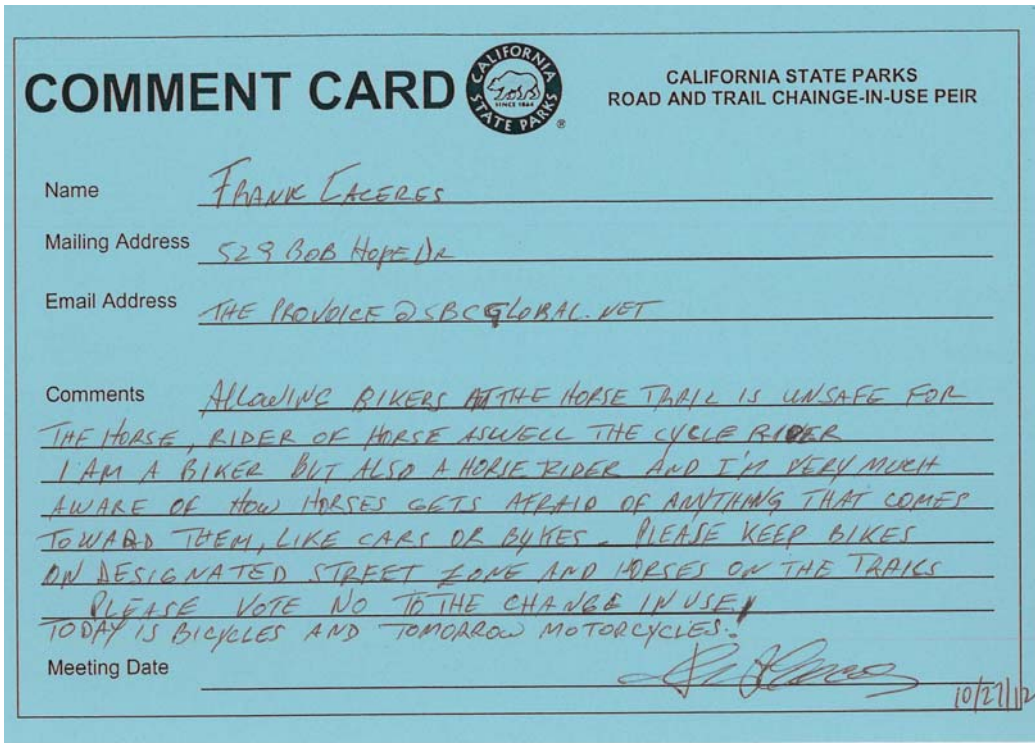 COMMENT CARD
CALIFORNIA
STATE PARKS
SINCE 1864
®
CALIFORNIA STATE PARKS
ROAD AND TRAIL CHAINGE-IN-USE PEIR
Name FRANK CACERES
Mailing Address 529 BOB HOPE DR
Email Address THE PROVOICE@SBCGLOBAL.NET
Comments ALLOWING BIKERS AT THE HORSE TRAIL IS UNSAFE FOR
THE HORSE, RIDER OF HORSE ASWELL THE CYCLE RIDER
I AM A BIKER BUT ALSO A HORSE RIDER AND I'M VERY MUCH
AWARE OF HOW HORSES GETS AFRAID OF ANYTHING THAT COMES
TOWARD THEM, LIKE CARS OR BYKES. PLEASE KEEP BIKES
ON DESIGNATED STREET ZONE AND HORSES ON THE TRAILS
PLEASE VOTE NO TO THE CHANGE IN USE!
TODAY IS BICYCLES AND TOMORROW MOTORCYCLES.
Meeting Date
10/27/12